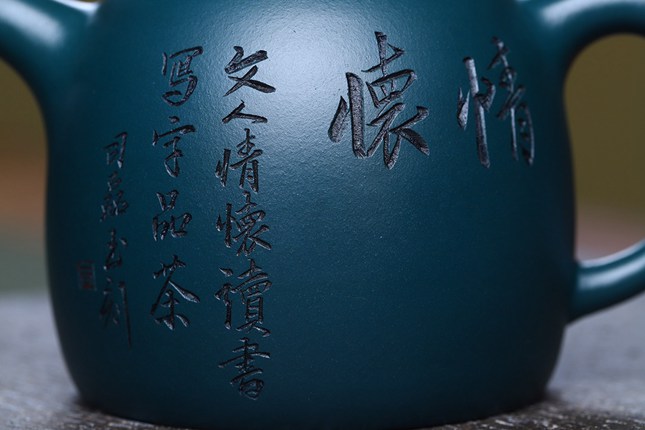 情懷
文人情懷讀書
写字品茶